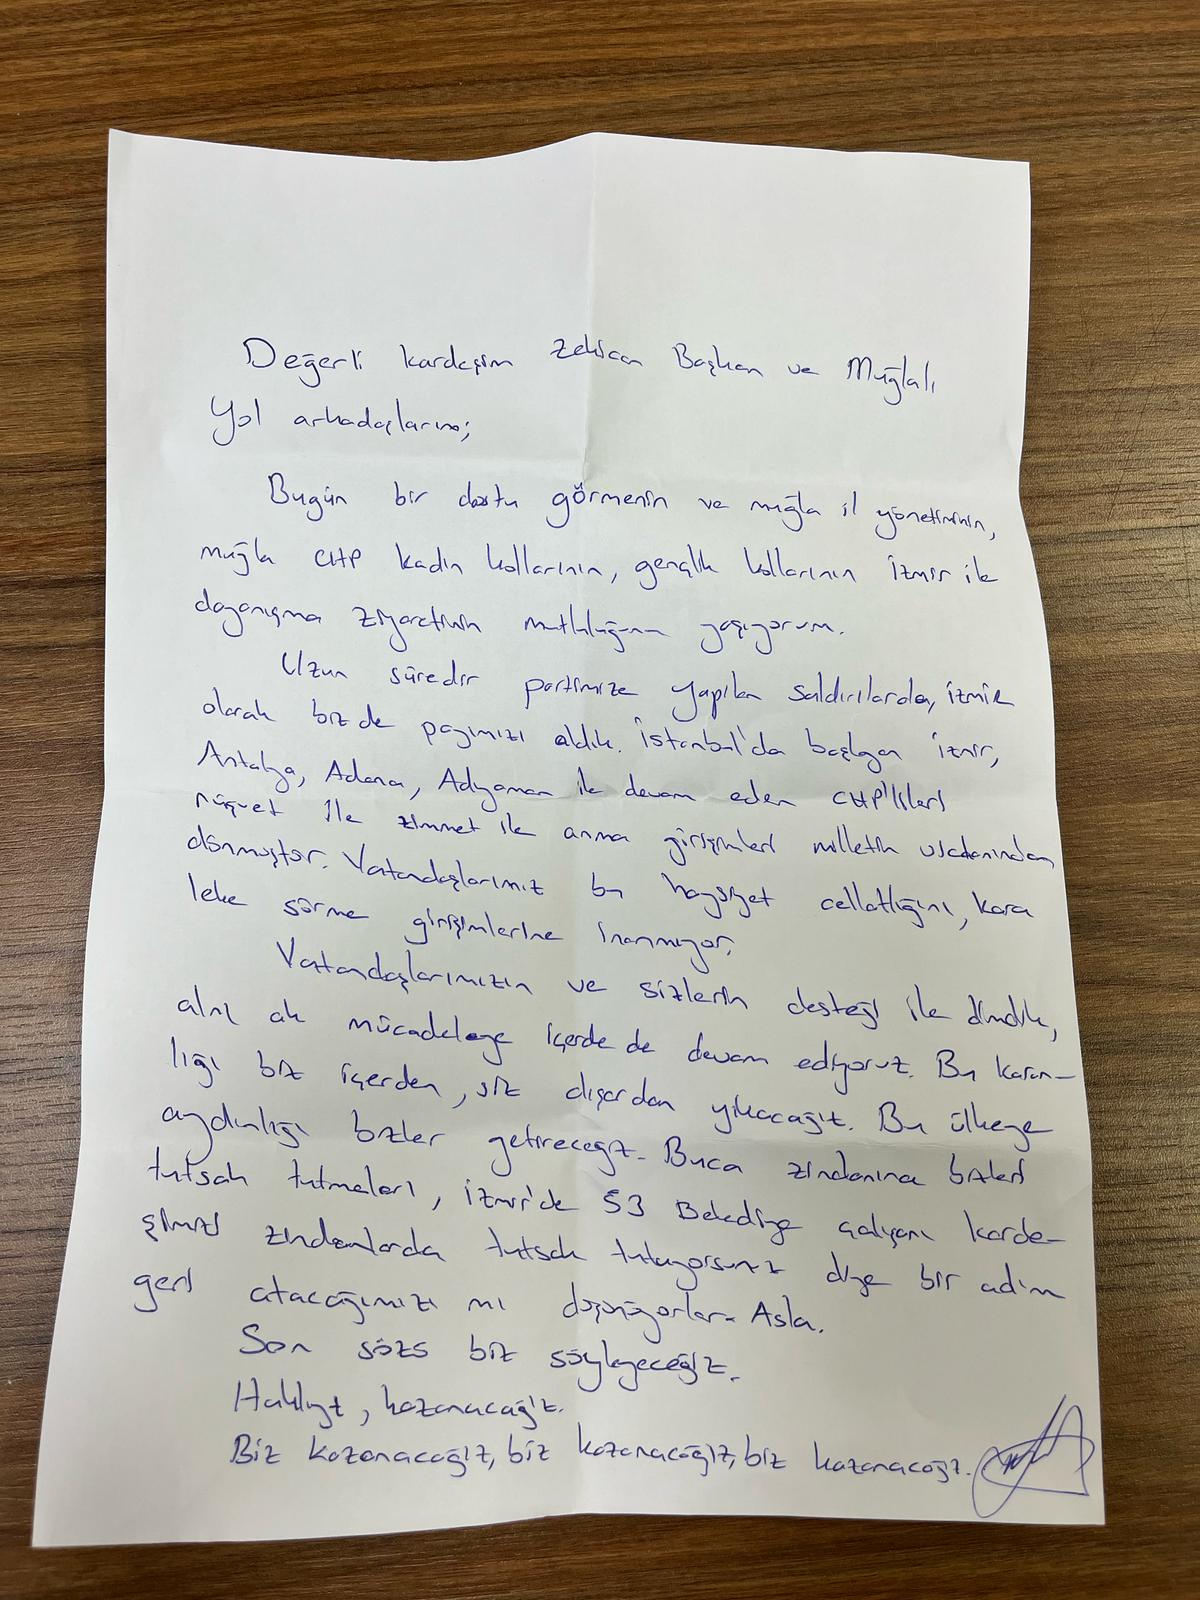 Değerli kardeşim Zekican Başkan ve Muğlalı
Yol arkadaşlarına;
Bugün bir dostu görmenin ve muğla il yönetiminin,
muğla CHP kadın kollarının, gençlik kollarının İzmir ile
dayanışma ziyaretinin mutluluğunu yaşıyorum.
Uzun süredir partimize yapılan saldırılarda, İzmir
olarak biz de payımızı aldık. İstanbul'da başlayan İzmir,
Antalya, Adana, Adıyaman ile devam eden CHP'lileri
rüşvet ile zimmet ile anma girişimleri milletin vicdanından
dönmüştür. Vatandaşlarımız bu haysiyet cellatlığını, kara
leke sürme girişimlerine inanmıyor.
Vatandaşlarımızın ve sizlerin desteği ile dimdik,
alnı ak mücadeleye içerde de devam ediyoruz. Bu karan-
lığı biz içerden, siz dışardan yıkacağız. Bu ülkeye
aydınlığı bizler getireceğiz. Buca zindanına bizleri
tutsak tutmaları, İzmir'de 53 Belediye çalışanı karde-
şimizi zindanlarda tutsak tutuyorsunuz diye bir adım
geri atacağımızı mı düşünüyorlar. Asla.
Son sözü biz söyleyeceğiz.
Haklıyız, kazanacağız.
Biz kazanacağız, biz kazanacağız, biz kazanacağız.